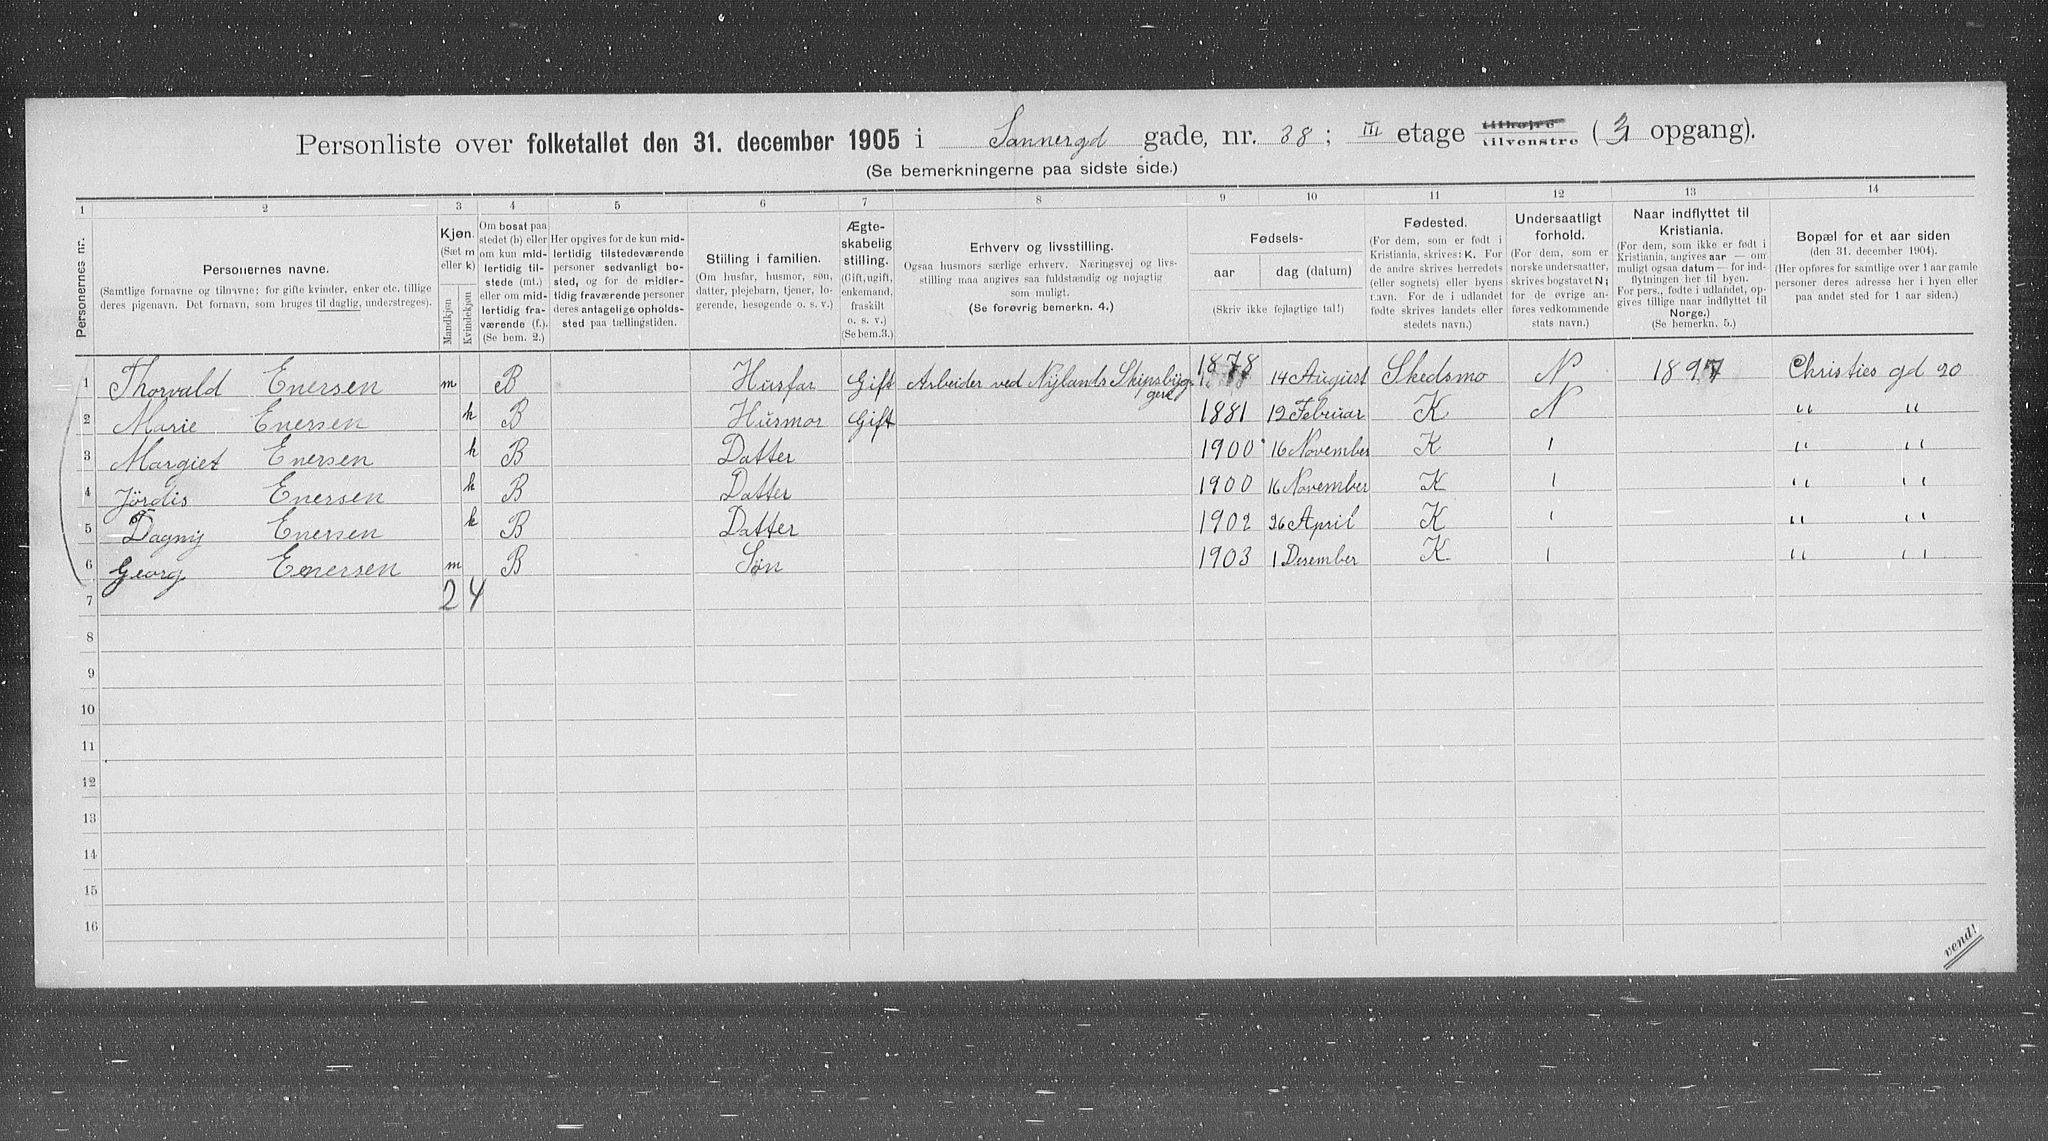 Personliste over folketallet den 31. december 1905 i Sannergd gade, nr. 38; III etage tilhøjre tilvenstre (3 opgang).
(Se bemerkningerne paa sidste side.)
1 2 3 4 5 6 7 8 9 10 11 12 13 14
Personernes nr.
Personernes navne.
(Samtlige fornavne og tilnavne; for gifte kvinder, enker etc. tillige deres pigenavn. Det fornavn, som bruges til daglig, understreges).
Kjøn.
(Sæt m eller k)
Mandkjøn
Kvindekjøn
Om bosat paa stedet (b) eller om kun midlertidig tilstede (mt.) eller om midlertidig fraværende (f.). (Se bem. 2.)
Her opgives for de kun midlertidig tilstedeværende personer sedvanligt bosted, og for de midlertidig fraværende personer deres antagelige opholdssted paa tællingstiden.
Stilling i familien.
(Om husfar, husmor, søn, datter, plejebarn, tjener, logerende, besøgende o. s. v.)
Ægteskabelig stilling.
(Gift, ugift, enkemand, fraskilt o. s. v.)
(Se bem. 3.)
Erhverv og livsstilling.
Ogsaa husmors særlige erhverv. Næringsvej og livsstilling maa angives saa fuldstændig og nøjagtig som muligt.
(Se forøvrig bemerkn. 4.)
Fødsels-
aar
dag (datum)
(Skriv ikke fejlagtige tal!)
Fødested.
(For dem, som er født i Kristiania, skrives: K. For de andre skrives herredets (eller sognets) eller byens navn. For de i udlandet fødte skrives landets eller stedets navn.)
Undersaatligt forhold.
(For dem, som er norske undersaatter, skrives bogstavet N; for de øvrige anføres vedkommende stats navn.)
Naar indflyttet til Kristiania.
(For dem, som ikke er født i Kristiania, angives aar — om muligt ogsaa datum — for indflytningen her til byen. For pers., fødte i udlandet, opgives tillige naar indflyttet til Norge.)
(Se bemerkn. 5.)
Bopæl for et aar siden
(den 31. december 1904).
(Her opføres for samtlige over 1 aar gamle personer deres adresse her i byen eller paa andet sted for 1 aar siden.)
1 Thorvald Enersen m B Husfar Gift Arbeider ved Nylands Skipsbyggeri 1878 14 August Skedsmo N 1897 Christies gd 20
2 Marie Enersen k B Husmor Gift 1881 12 Februar K N " "
3 Margiet Enersen k B Datter 1900 16 November K ı " "
4 Jördis Enersen k B Datter 1900 16 November K ı " "
5 Dagny Enersen k B Datter 1902 26 April K ı " "
6 Georg Enersen m B Søn 1903 1 Desember K ı " "
7 2 4
8
9
10
11
12
13
14
15
16
vend!